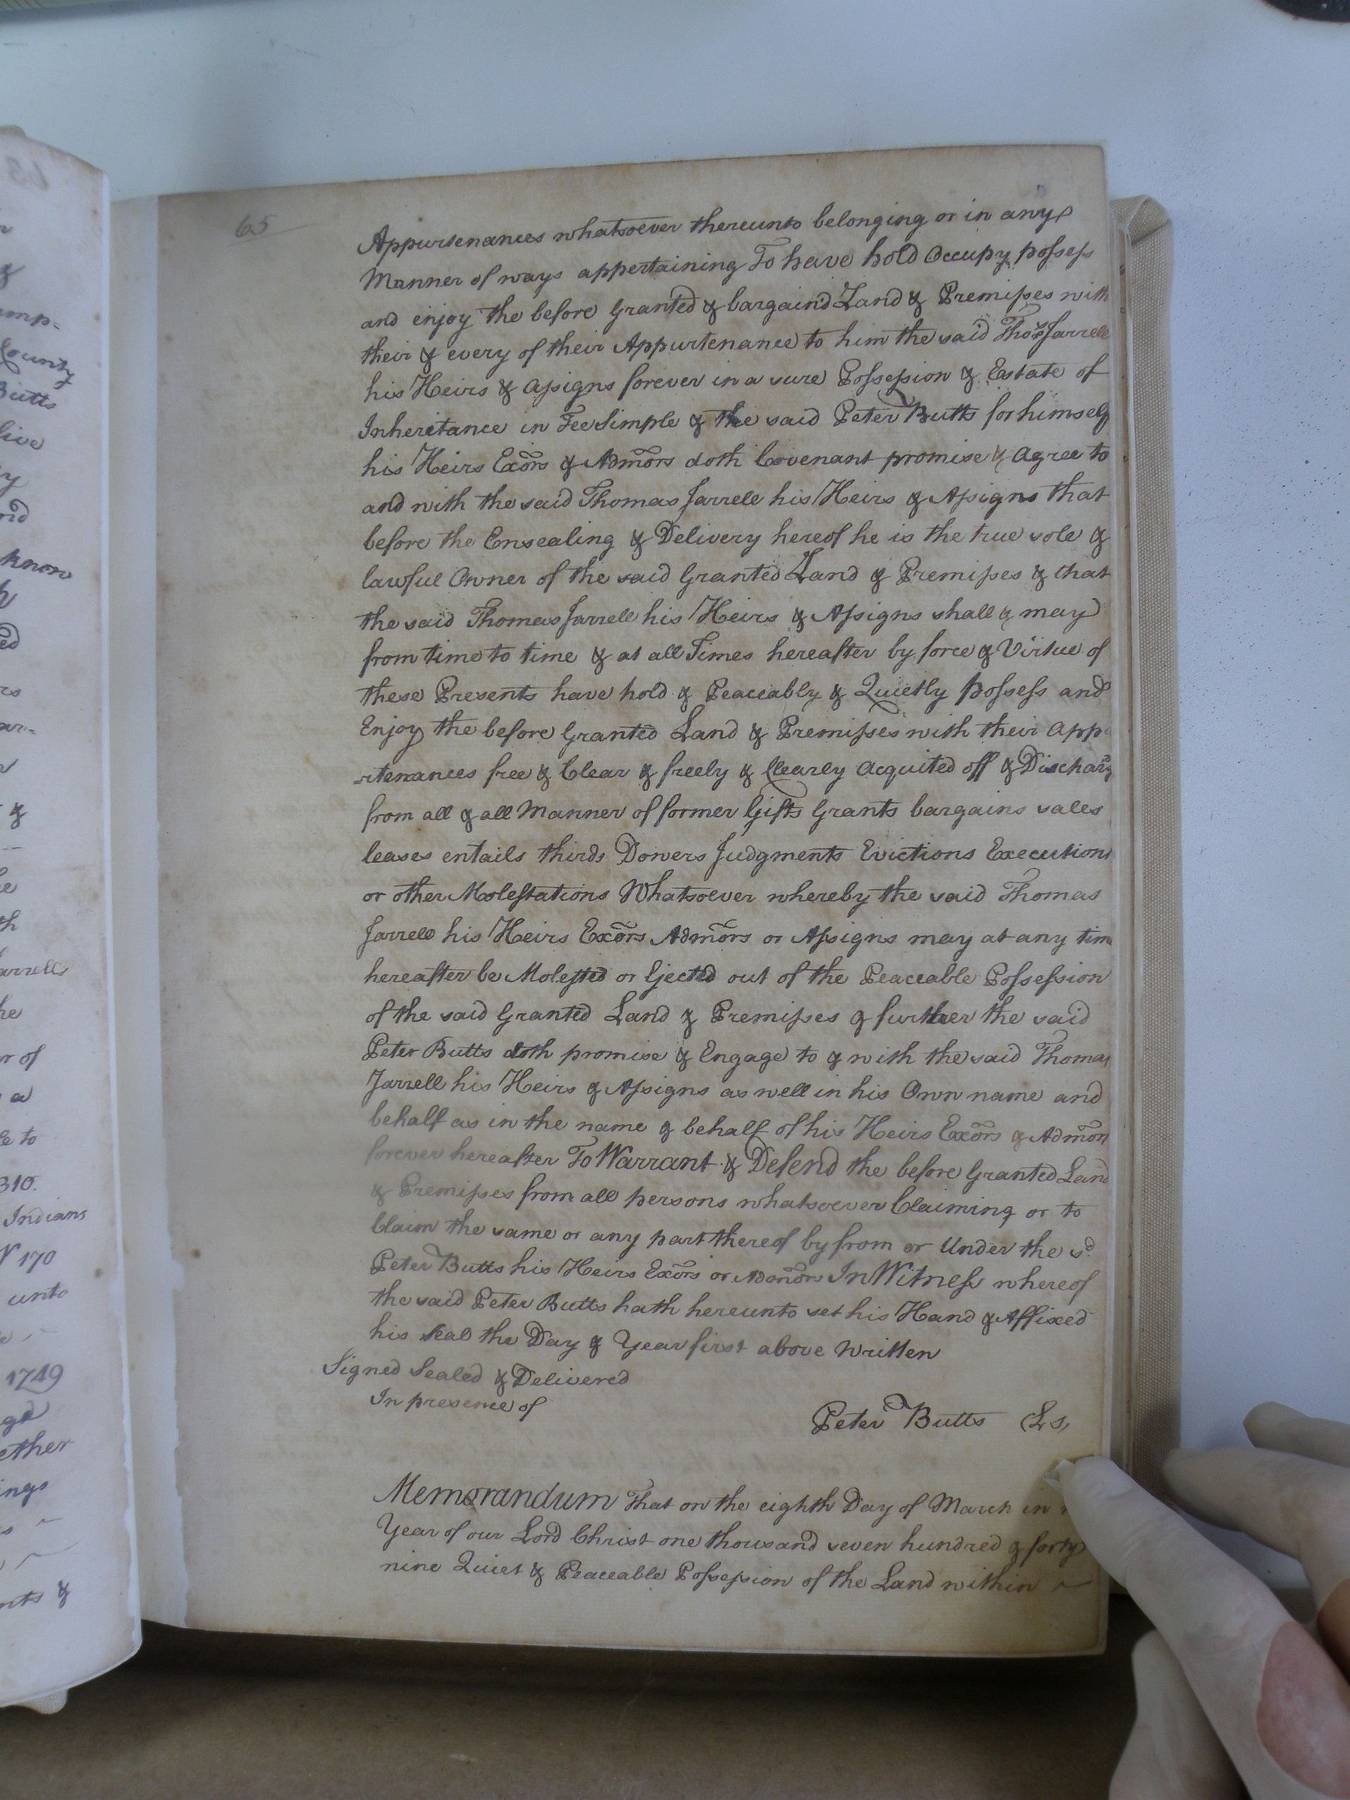 65
Appurtenances whatsoever thereunto belonging or in any
Manner of ways appertaining To have hold Occupy possess
and enjoy the before Granted & bargain'd Land & Premisses with
their & every of their Appurtenance to him the said Thos. Jarrell
his Heirs & Assigns forever in a sure Possession & Estate of
Inheritance in Fee Simple & the said Peter Butts for himself
his Heirs Exors & Admors doth Covenant promise & Agree to
and with the said Thomas Jarrell his Heirs & Assigns that
before the Ensealing & Delivery hereof he is the true sole &
lawful Owner of the said Granted Land & Premisses & that
the said Thomas Jarrell his Heirs & Assigns shall & may
from time to time & at all Times hereafter by force & Virtue of
these Presents have hold & Peaceably & Quietly possess and
Enjoy the before Granted Land & Premisses with their App
rtenances free & Clear & freely & Clearly Acquited off & Discharg
from all & all Manner of former Gifts Grants bargains sales
leases entails thirds Dowers Judgments Evictions Executions
or other Molestations Whatsoever whereby the said Thomas
Jarrell his Heirs Exors Admors or Assigns may at any time
hereafter be Molested or Ejected out of the Peaceable Possession
of the said Granted Land & Premisses & further the said
Peter Butts doth promise & Engage to & with the said Thomas
Jarrell his Heirs & Assigns as well in his Own name and
behalf as in the name & behalf of his Heirs Exors & Admors
forever hereafter To Warrant & Defend the before Granted Land
& Premisses from all persons whatsoever Claiming or to
Claim the same or any part thereof by from or Under the sd
Peter Butts his Heirs Exors or Admors In Witness whereof
the said Peter Butts hath hereunto set his Hand & Affixed
his Seal the Day & Year first above written
Signed Sealed & Delivered
In presence of
Peter Butts (Ls,
Memorandum That on the eighth Day of March in
Year of our Lord Christ one thousand seven hundred & forty
nine Quiet & Peaceable Possession of the Land within
County
Butts
know
310.
Indians
170
unto
1749